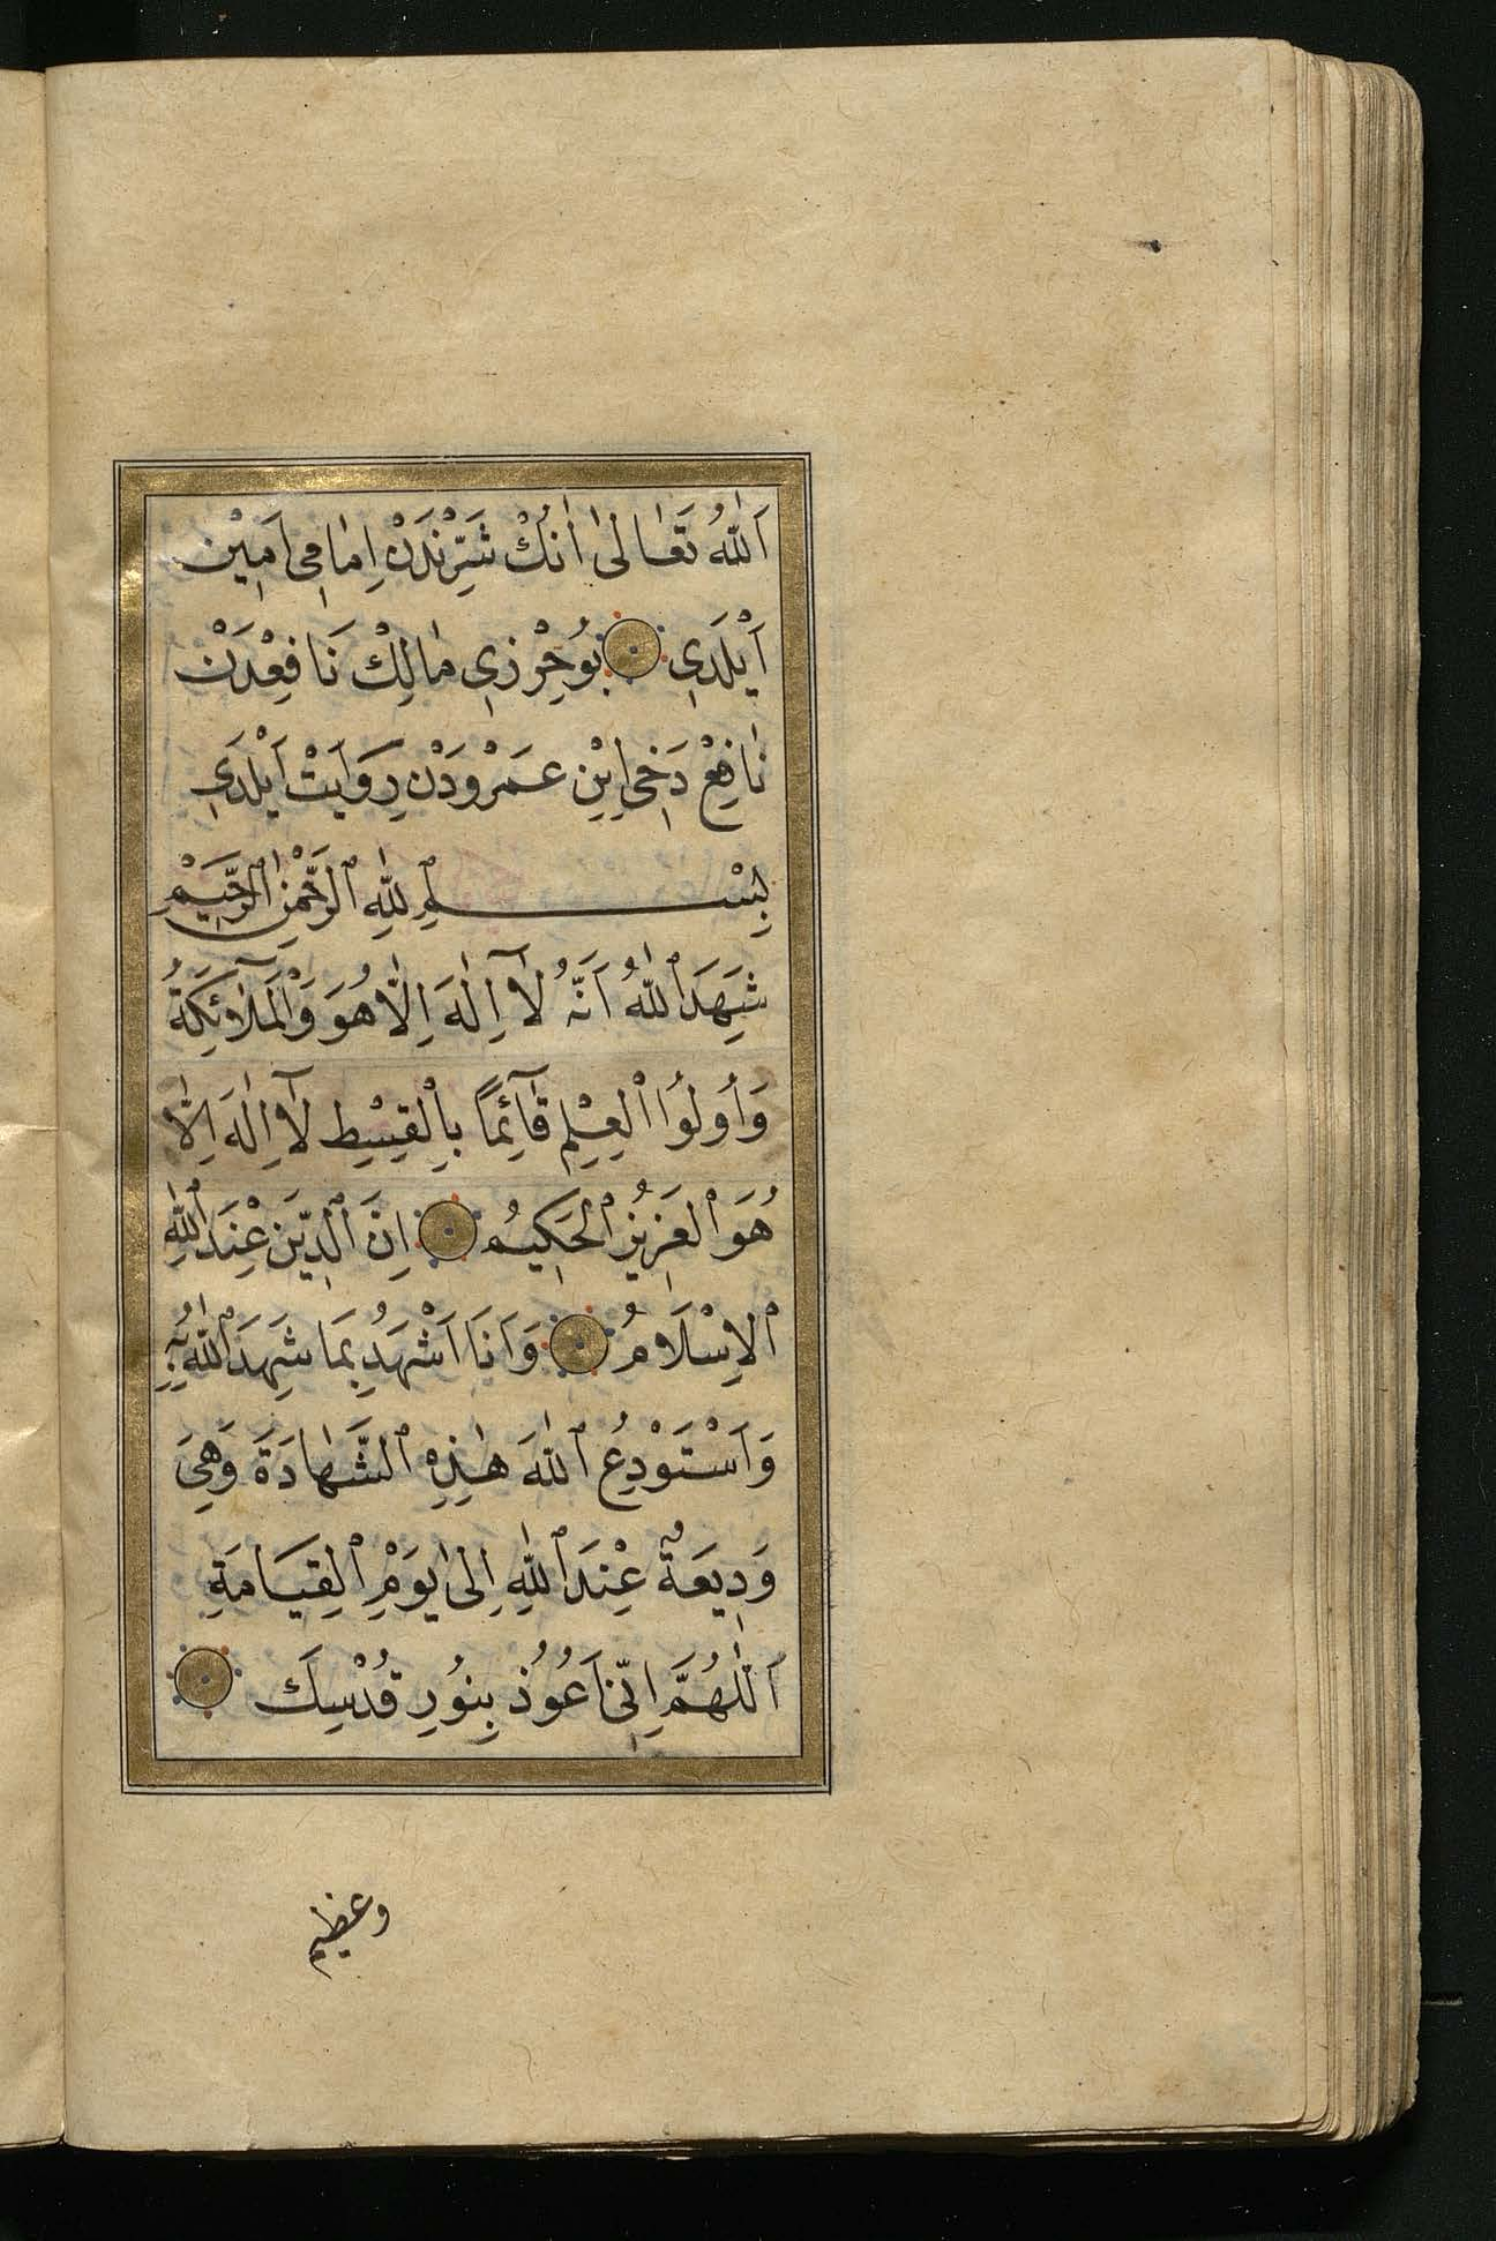 اَللّٰهُ تَعَالٰى اَنُكْ شَرِّنْدَنْ اِمَامِى اَمِيْن
اَيْلَدِى بُوحِرْزِى مَالِكْ نَافِعْدَنْ
نَافِعْ دَخِى اِبْنِ عَمَرْودَنْ رِوَايَتْ اَيْلَدِى
بِسْمِ اللّٰهِ الرَّحْمٰنِ الرَّحِيْمِ
شَهِدَ اللّٰهُ اَنَّهُ لَآ اِلٰهَ اِلَّا هُوَ وَالْمَلٰٓائِكَةُ
وَاُولُوا الْعِلْمِ قَآئِمًا بِالْقِسْطِ لَآ اِلٰهَ اِلَّا
هُوَ الْعَزِيزُ الْحَكِيمُ اِنَّ الدِّيَنَ عِنْدَ اللّٰهِ
الْاِسْلَامُ وَاَنَا اَشْهَدُ بِمَا شَهِدَ اللّٰهُ بِهِ
وَاَسْتَوْدِعُ اللّٰهَ هٰذِهِ الشَّهَادَةَ وَهِىَ
وَدِيعَةٌ عِنْدَ اللّٰهِ اِلٰى يَوْمِ الْقِيَامَةِ
اَللّٰهُمَّ اِنِّى اَعُوُذُ بِنُورِ قُدْسِكَ
وعظيم